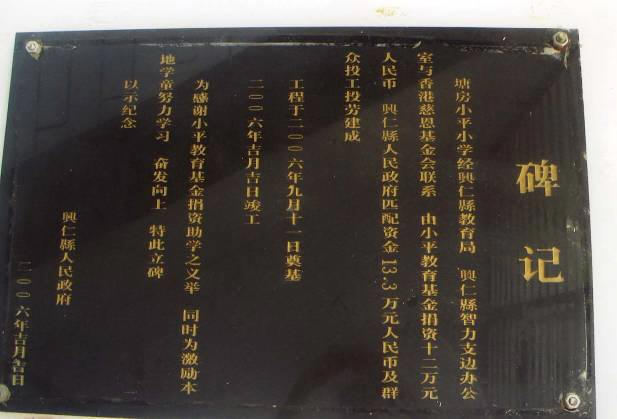 碑记
塘房小平小学经興仁縣教育局 興仁縣智力支边办公
室与香港慈恩基金会联系 由小平教育基金捐资十二万元
人民币 興仁縣人民政府匹配资金13.3万元人民币及群
众投工投劳建成
工程于二00六年九月十一日奠基
二00六年吉月吉日竣工
为感谢小平教育基金捐资助学之义举 同时为激励本
地学童努力学习 奋发向上 特此立碑
以示纪念
興仁縣人民政府
二00六年吉月吉日